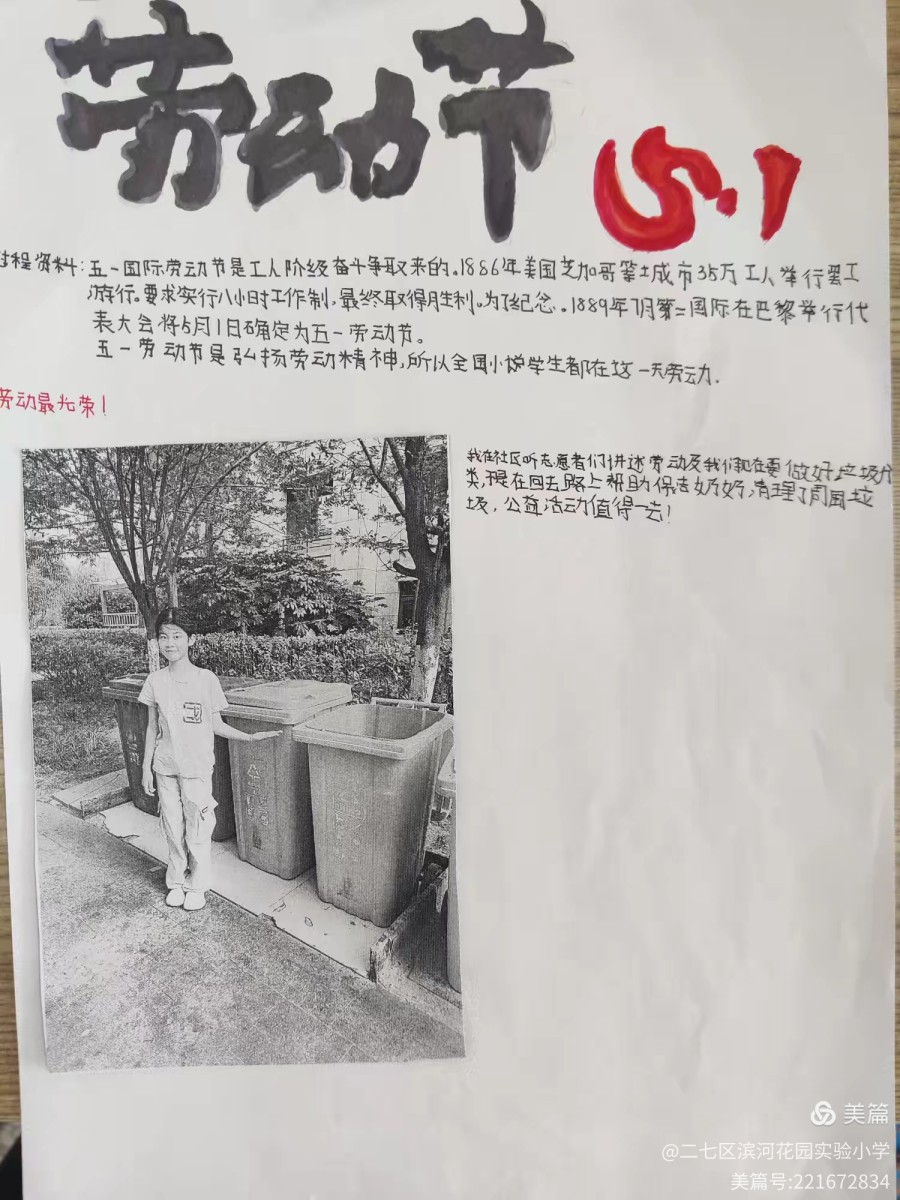 劳动节
5.1
过程资料:五一国际劳动节是工人阶级奋斗争取来的.1886年美国芝加哥等城市35万工人举行罢工
游行.要求实行八小时工作制,最终取得胜利.为了纪念.1889年7月第二国际在巴黎举行代
表大会将5月1日确定为五一劳动节。
五一劳动节是弘扬劳动精神,所以全国小学生都在这一天劳动.
劳动最光荣!
我在社区听志愿者们讲述劳动及我们现在要做好垃圾分
类,于是在回去路上帮助保洁奶奶,清理了周围垃
圾,公益活动值得一去!
美篇
@二七区滨河花园实验小学
美篇号:221672834